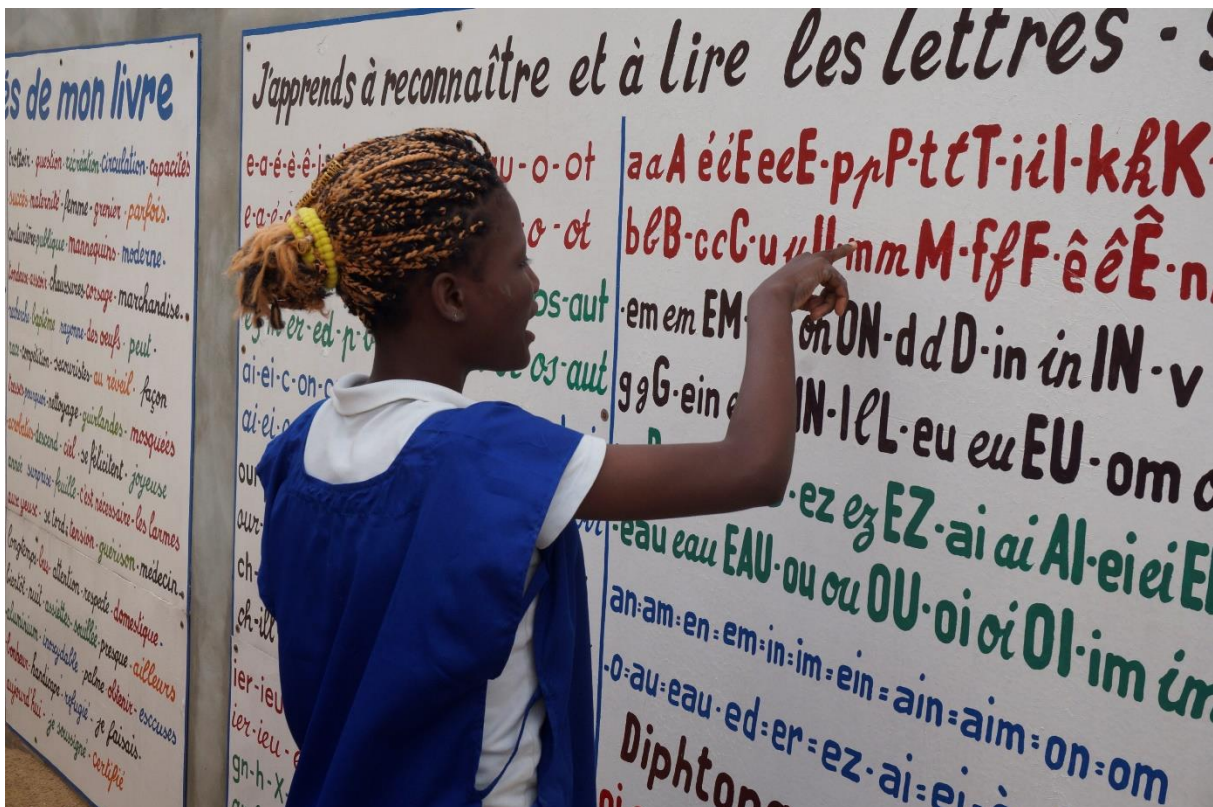 és de mon livre
trottoir - question - récréation - circulation - capacités
succès - maternité - femme - grenier - parfois -
couturière - publique - mannequins - moderne -
chaussures - corsage - marchandise -
baptême rayonne - des oeufs - peut -
compétition - secouristes - au réveil - façon
nettoyage - guirlandes - mosquées
descend - ciel - se félicitent - joyeuse
année surprise - feuille - c'est nécessaire - les larmes
aux yeux - se tord - tension - guérison - médecin -
longtemps - bus - attention - respecte - domestique -
bientôt - nuit - assiettes - souillés - presque - ailleurs
aluminium - incroyable - palme - obtenir - excuses
bonheur - handicapé - réfugié - je faisais -
aujourd'hui - je soussigné - certifié
J'apprends à reconnaître et à lire les lettres - s
e-a-é-è-ê-i
u - o - ot
e-a-é
o - ot
os-aut
er-ed-p
os-aut
ai-ei-c-on-o
ai-ei
our
our-
ch-
ch-ill
ier-ieu
ier-ieu - e
gn-h-X
a a A é é E e e E - p p P - t t T - i i I - k k K -
b b B - c c C - u u U m m M - f f F - ê ê Ê - n
-em em EM - on ON - d d D - in in IN - v
g g G - ein IN - l l L - eu eu EU - om
- ez ez EZ - ai ai AI - ei ei EI
-eau eau EAU - ou ou OU - oi oi OI - im im
an=am=en=em=in=im=ein=ain=aim=on=om
-o=au=eau-ed=er=ez-ai=ei
Diphtong